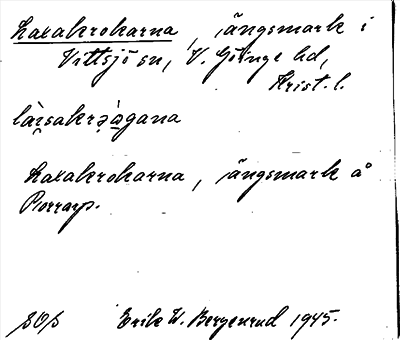 Laxakrokarna, ängsmark i
Vittsjö sn, V. Göinge hd,
Krist. l.
Laxakrokarna, ängsmark å
Porrarp.
SOS Erik W. Bergenrud 1945.